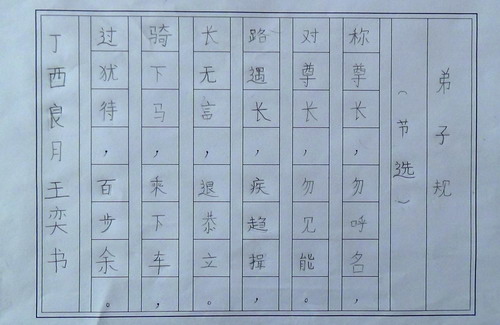 弟子规
（节选）
称尊长，勿呼名，
对尊长，勿见能。
路遇长，疾趋揖，
长无言，退恭立。
骑下马，乘下车，
过犹待，百步余。
丁酉良月王奕书